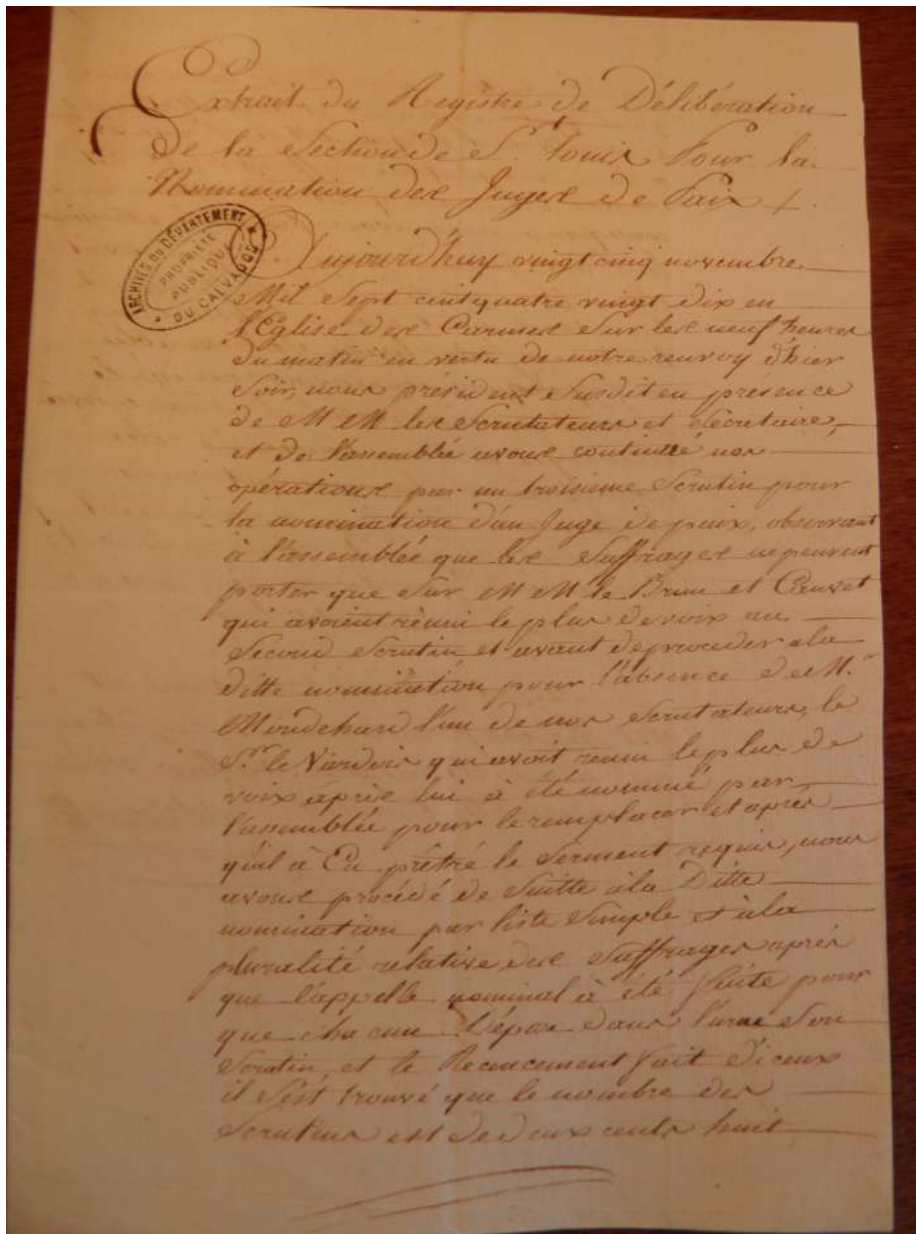 Extrait du Registre de Délibération
de la Section de St. Louis Pour la
Nomination des Juges de Paix
ARCHIVES DU DÉPARTEMENT
PROPRIÉTÉ
PUBLIQUE
DU CALVADOS
Aujourd'huy vingt cinq novembre
Mil Sept cent quatre vingt dix en
l'Eglise des Carmes Sur les neuf heures
du matin en vertu de notre renvoy d'hier
Soir, nous président Susdit en présence
de MM les Scrutateurs et Secretaire,
et de l'assemblée avons continué nos
opérations par un troisieme Scrutin pour
la nomination d'un Juge de paix, observant
à l'assemblée que les Suffrages ne peuvent
porter que Sur MM le Brun et Cauvet
qui avoient réuni le plus de voix au
Second Scrutin et avant de proceder a la
ditte nomination pour l'absence de M.r
l'un de nos Scrutateurs, le
Sr. le qui avoit reuni le plus de
voix après lui à été nommé par
l'assemblée pour le remplacer et après
qu'il à Eu prêtré le Serment requis, nous
avons procédé de Suitte à la Ditte
nomination par liste Simple et à la
pluralité relative des Suffrages après
que l'appelle nominal à été faite pour
que chacun Dépose dans l'urne Son
Scrutin, et le Recencement fait d'iceux
il S'est trouvé que le nombre des
Scrutins est de deux cents huit